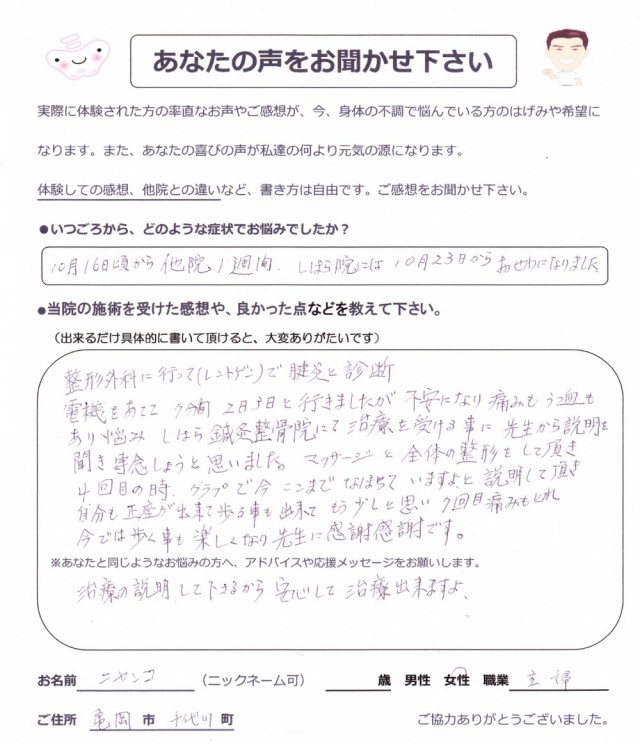 あなたの声をお聞かせ下さい
実際に体験された方の率直なお声やご感想が、今、身体の不調で悩んでいる方のはげみや希望に
なります。また、あなたの喜びの声が私達の何より元気の源になります。
体験しての感想、他院との違いなど、書き方は自由です。ご感想をお聞かせ下さい。
●いつごろから、どのような症状でお悩みでしたか？
10月16日頃から他院1週間、しはら院には10月23日からおせわになりました
●当院の施術を受けた感想や、良かった点などを教えて下さい。
（出来るだけ具体的に書いて頂けると、大変ありがたいです）
整形外科に行って(レントゲン)で腱炎と診断
電機をあてて 7分間 2日3日と行きましたが 不安になり痛みもうっ血も
あり悩み しはら鍼灸整骨院にて治療を受ける事に先生から説明を
聞き専念しようと思いました。マッサージと全体の整形をして頂き
4回目の時、グラフで今ここまでなおっていますよと説明して頂き
自分も正座が出来て歩る事も出来て もう少しと思い 7回目痛みもとれ
今では歩く事も楽しくなり先生に感謝感謝です。
※あなたと同じようなお悩みの方へ、アドバイスや応援メッセージをお願いします。
治療の説明して下さるから安心して治療出来ますよ、
お名前 ニャンコ （ニックネーム可） 歳 男性 女性 職業 主婦
ご住所 亀岡 市 千代川 町 ご協力ありがとうございました。